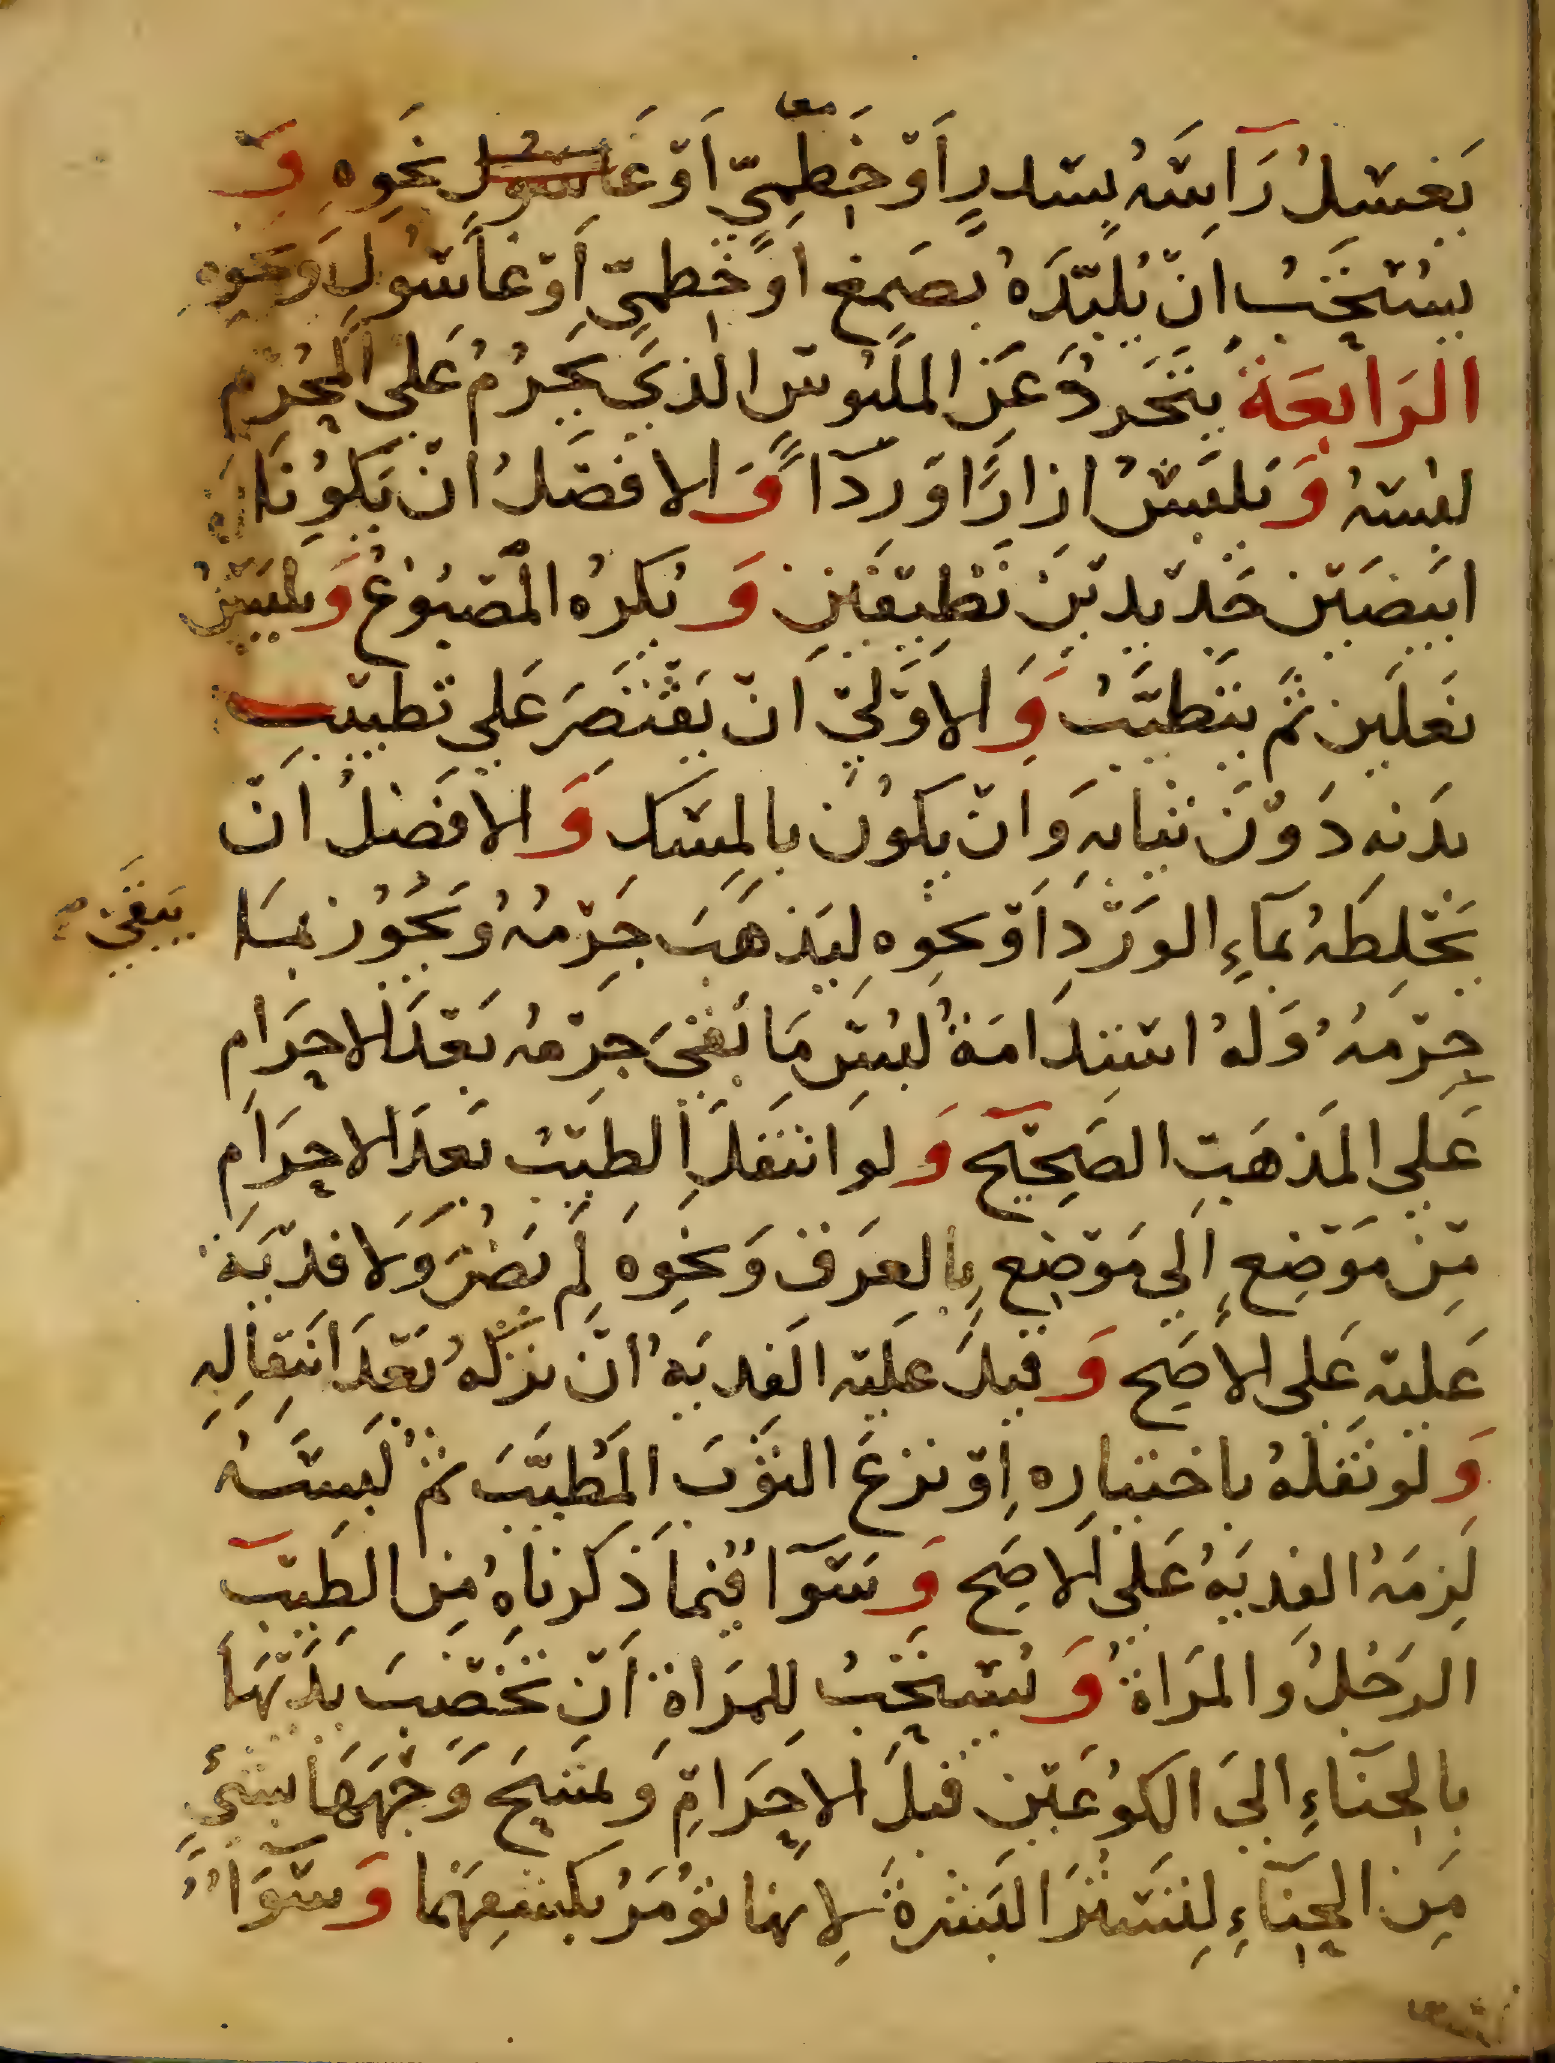 معا
يغسل رأسه بسدر أو خطمي أو غاسول نحوه و
يستحب ان يلبده بصمغ أو خطمي أو غاسول ونحوه
الرابعة يتجرد عن الملبوس الذي يحرم على المحرم
لبسه و يلبس ازارا وردآ و الافضل ان يكونا
ابيضين جديدين نظيفين و يكره المصبوغ و يلبس
نعلين ثم يتطيب و الاولى ان يقتصر على تطييب
بدنه دون ثيابه وان يكون بالمسك و الافضل ان
يخلطه بمآء الورد أو نحوه ليذهب جرمه ويجوز بما
يبقى
جرمه وله استدامة لبس ما بقى جرمه بعد الاحرام
على المذهب الصحيح و لو انتقل الطيب بعد الاحرام
من موضع إلى موضع بالعرق ونحوه لم يضر ولا فدية
عليه على الاصح و قيل عليه الفدية ان نزله بعد انتقاله
و لو نقله باختياره أو نزع الثوب المطيب ثم لبسه
لزمه الفدية على الاصح و سوآ فيما ذكرناه من الطيب
الرجل والمراة و يستحب للمراة ان تخضب يدها
بالحناء الى الكوعين قبل الاحرام وتمسح وجهها بشئ
من الحناء لتستتر البشرة لانها تؤمر بكشفهما و سوآ